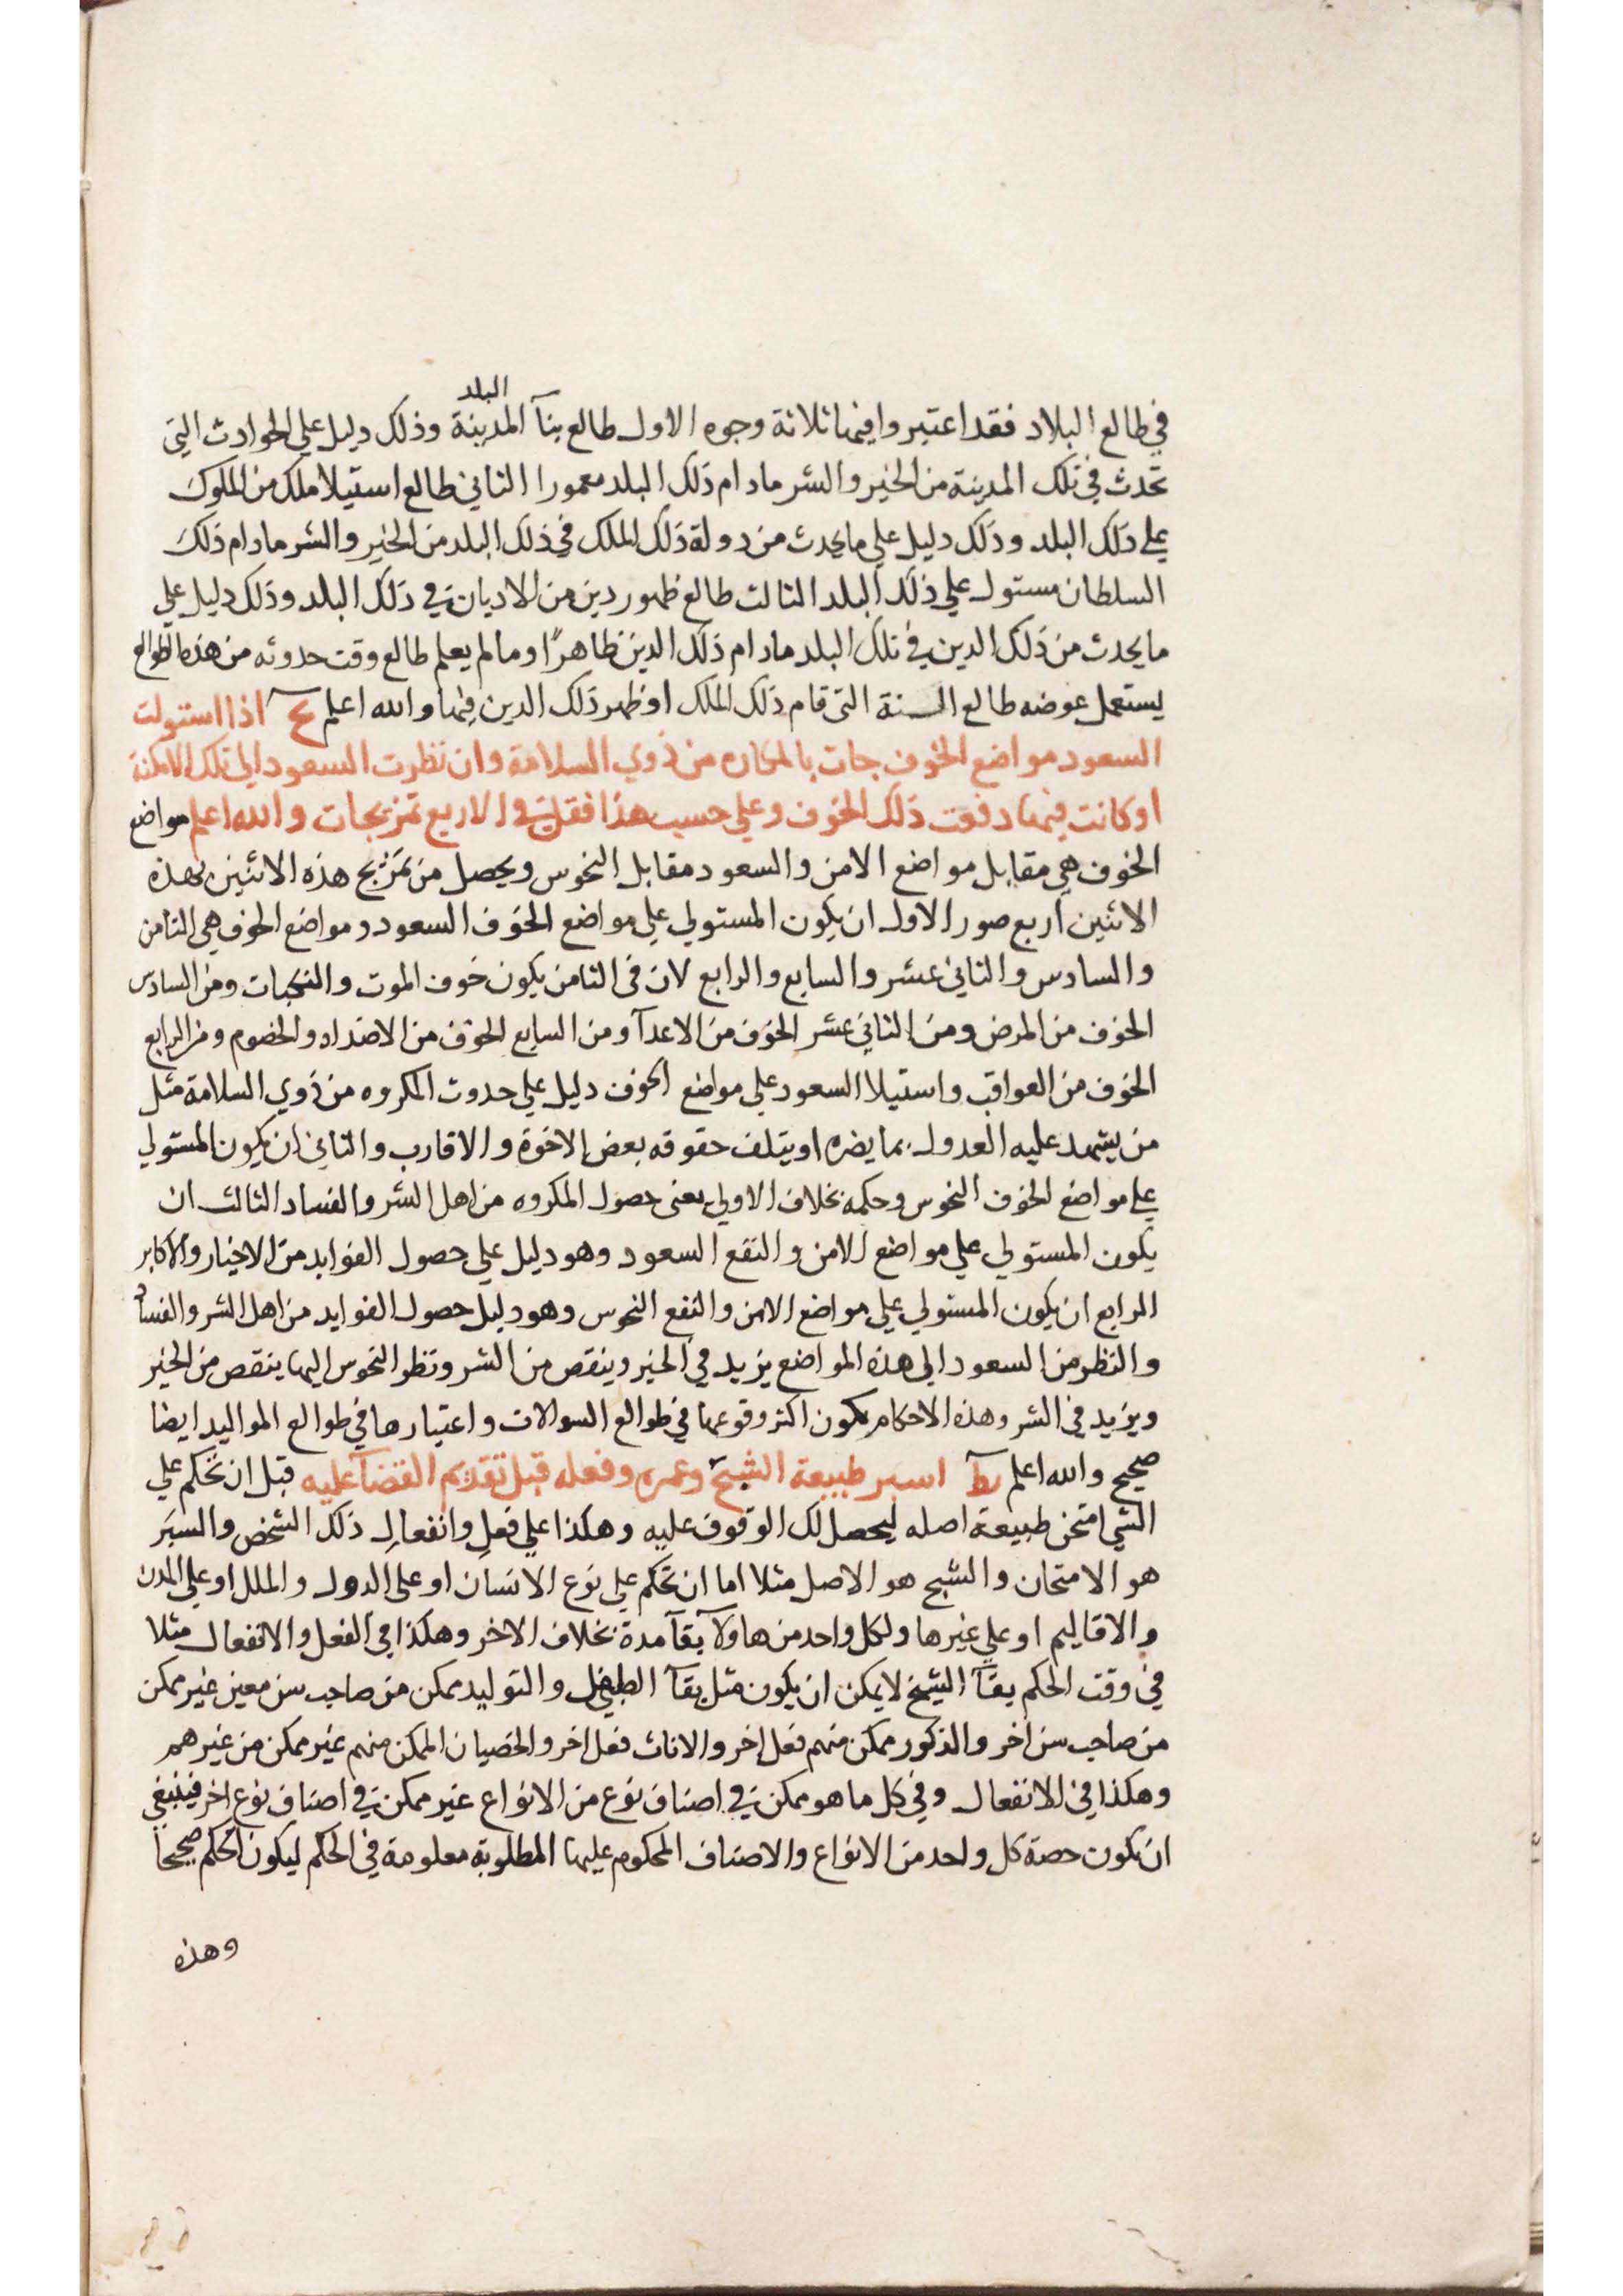 البلد
في طالع البلاد فقد اعتبروا فيها ثلاثة وجوه الاول طالع بنآ المدينة وذلك دليل علي الحوادث التي
تحدث في تلك المدينة من الخير والشر مادام ذلك البلد معمورا الثاني طالع استيلا ملك من الملوك
علي ذلك البلد وذلك دليل علي ما يحدث من دولة ذلك الملك في ذلك البلد من الخير والشر مادام ذلك
السلطان مستول علي ذلك البلد الثالث طالع ظهور دين من الاديان في ذلك البلد وذلك دليل علي
ما يحدث من ذلك الدين في تلك البلد مادام ذلك الدين ظاهرًا وما لم يعلم طالع وقت حدوثه من هذه الطوالع
يستعمل عوضه طالع السنة التى قام ذلك الملك او ظهر ذلك الدين فيها والله اعلم اذا استولت
السعود مواضع الخوف جات بالمكاره من ذوي السلامة وان نظرت السعود الى تلك الامكنة
او كانت فيها دفعت ذلك الخوف وعلي حسب هذا فقل في الاربع تمزيجات والله اعلم مواضع
الخوف هي مقابل مواضع الامن والسعود مقابل النحوس ويحصل من تمزيج هذه الاثنين بهذه
الاثنين اربع صور الاول ان يكون المستولي علي مواضع الخوف السعود ومواضع الخوف هي الثامن
والسادس والثاني عشر والسابع والرابع لان فى الثامن يكون خوف الموت والنكبات ومن السادس
الخوف من المرض ومن الثاني عشر الخوف من الاعدآ ومن السابع الخوف من الاضداد والخصوم ومن الرابع
الخوف من العواقب واستيلا السعود علي مواضع الخوف دليل علي حدوث المكروه من ذوي السلامة مثل
من يشهد عليه العدول بما يضره او يتلف حقوقه بعض الاخوة والاقارب والثاني ان يكون المستولي
علي مواضع الخوف النحوس وحكمه بخلاف الاولي يعنى حصول المكروه من اهل الشر والفساد الثالث ان
يكون المستولي علي مواضع الامن والنفع السعود وهو دليل علي حصول الفوايد من الاخيار والاكابر
الرابع ان يكون المستولي علي مواضع الامن والنفع النحوس وهو دليل حصول الفوايد من اهل الشر والفساد
والنظر من السعود الى هذه المواضع يزيد في الخير وينقص من الشر ونظر النحوس اليها ينقص من الخير
ويزيد في الشر وهذه الاحكام يكون اكثر وقوعها في طوالع السوالات واعتبارها في طوالع المواليد ايضا
صحيح والله اعلم كط اسبر طبيعة الشبح وعمره وفعله قبل تقديم القضآ عليه قبل ان تحكم علي
الشي امتحن طبيعة اصله ليحصل لك الوقوف عليه وهكذا علي فعلِ وانفعالِ ذلك الشخص والسبَر
هو الامتحان والشبح هو الاصل مثلا اما ان تحكم علي نوع الانسان او على الدول والملل او علي المدن
والاقاليم او علي غيرها ولكل واحد من هاولآ بقآ مدة بخلاف الاخر وهكذا في الفعل والانفعال مثلا
في وقت الحكم بقآ الشيخ لا يمكن ان يكون مثل بقآ الطفل والتوليد ممكن من صاحب سن معين غير ممكن
من صاحب سن اخر والذكور ممكن منهم فعل اخر والاناث فعل اخر والخصيان الممكن منهم غير ممكن من غيرهم
وهكذا في الانفعال وفي كل ما هو ممكن في اصناف نوع من الانواع غير ممكن في اصناف نوع اخر فينبغي
ان يكون حصة كل واحد من الانواع والاصناف المحكوم عليها المطلوبة معلومة في الحكم ليكون الحكم صحيحا
وهذه